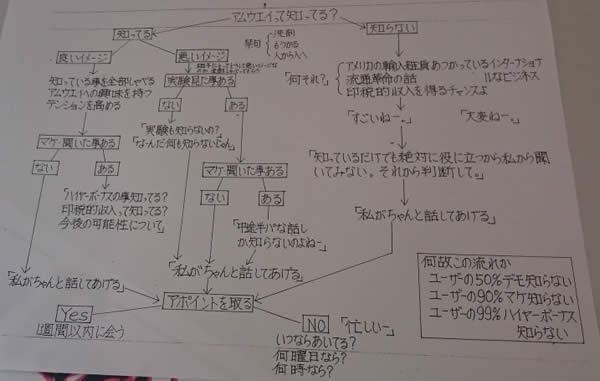 アムウエイって知ってる?
知ってる
知らない
良いイメージ
悪いイメージ
禁句
洗剤
もうかる
人から人へ
知っている事を全部しゃべる
アムウエイへの興味を持つ
テンションを高める
実験見た事ある
ない
ある
「何それ?」
アメリカの輸入雑貨あつかっているインターナショナルなビジネス
流通革命の話
印税的収入を得るチャンスよ
「すごいねー。」
「大変ねー。」
「実験も知らないの?
なーんだ何も知らないじゃん」
マケ聞いた事ある
ない
ある
マケ聞いた事ある
ない
ある
「知っているだけでも絶対に役に立つから私から聞
いてみない。それから判断して。」
「ハイヤーボーナスの事知ってる?
印税的収入って知ってる?
今後の可能性について」
「中途半パな話し
か知らないのよねー」
「私がちゃんと話してあげる」
「私がちゃんと話してあげる」
「私がちゃんと話してあげる」
アポイントを取る
Yes
1週間以内に会う
NO
「忙しい」
いつならあいてる?
何曜日なら?
何時なら?
何故この流れか
ユーザーの50%デモ知らない
ユーザーの90%マケ知らない
ユーザーの99%ハイヤーボーナス
知らない